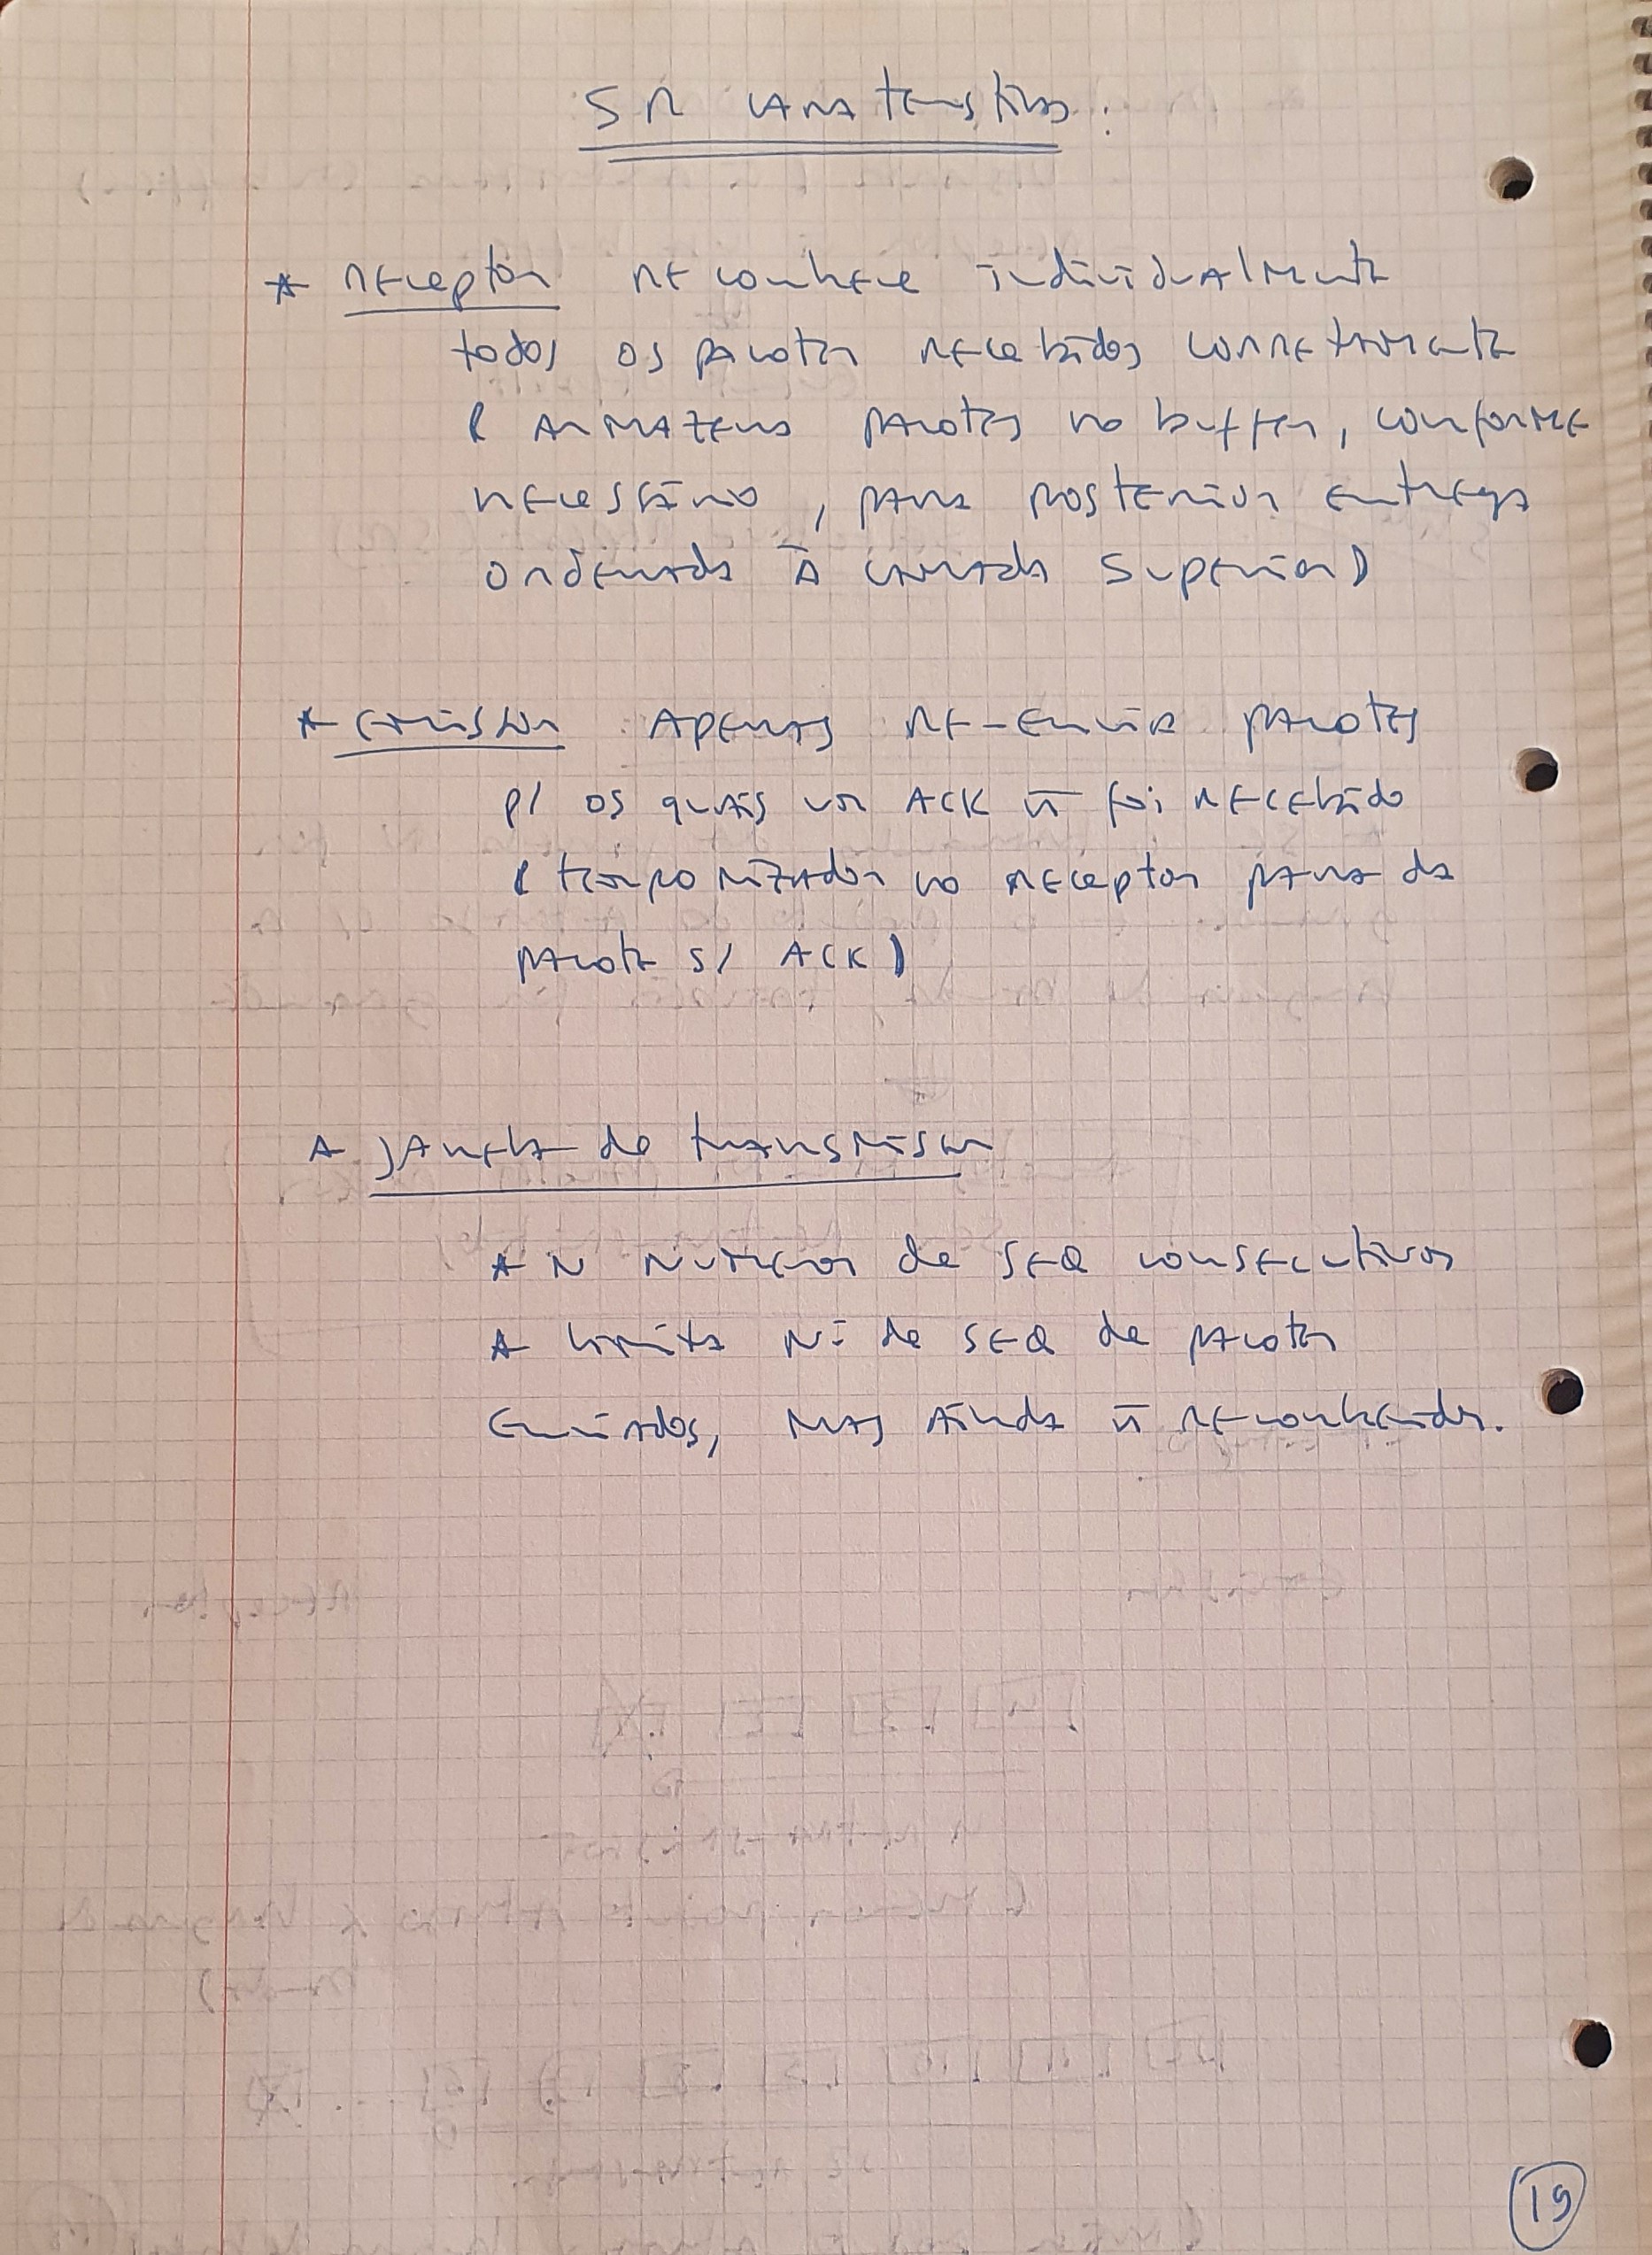 SR características:
* receptor reconhece individualmente
todos os pacotes recebidos corretamente
( armazena pacotes no buffer, conforme
necessário, para posterior entrega
ordenada à camada superior)
* emissor apenas re-envia pacotes
p/ os quais um ACK ñ foi recebido
( temporizador no receptor para da
pacote s/ ACK)
* janela de transmissor
* N números de SEQ consecutivos
* limita Nº de SEQ de pacotes
enviados, mas ainda ñ reconhecidos.
19